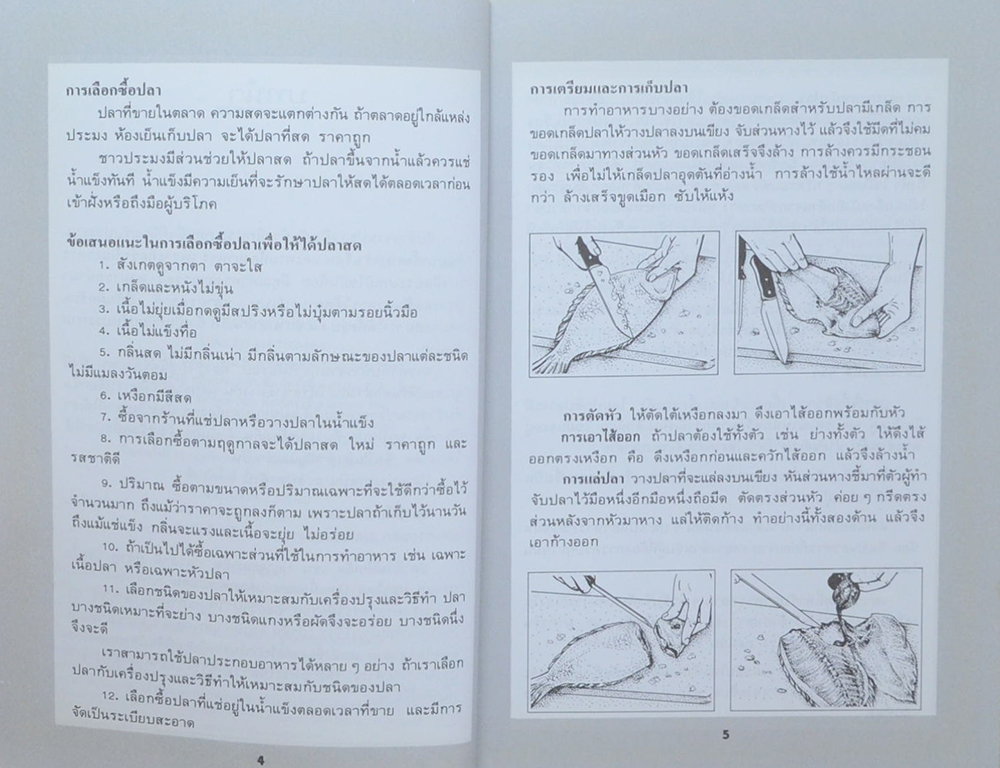 การเลือกซื้อปลา
ปลาที่ขายในตลาด ความสดจะแตกต่างกัน ถ้าตลาดอยู่ใกล้แหล่ง
ประมง ห้องเย็นเก็บปลา จะได้ปลาที่สด ราคาถูก
ชาวประมงมีส่วนช่วยให้ปลาสด ถ้าปลาขึ้นจากน้ำแล้วควรแช่
น้ำแข็งทันที น้ำแข็งมีความเย็นที่จะรักษาปลาให้สดได้ตลอดเวลาก่อน
เข้าฝั่งหรือถึงมือผู้บริโภค
ข้อเสนอแนะในการเลือกซื้อปลาเพื่อให้ได้ปลาสด
1. สังเกตดูจากตา ตาจะใส
2. เกล็ดและหนังไม่ขุ่น
3. เนื้อไม่ยุ่ยเมื่อกดดูมีสปริงหรือไม่บุ๋มตามรอยนิ้วมือ
4. เนื้อไม่แข็งทื่อ
5. กลิ่นสด ไม่มีกลิ่นเน่า มีกลิ่นตามลักษณะของปลาแต่ละชนิด
ไม่มีแมลงวันตอม
6. เหงือกมีสีสด
7. ซื้อจากร้านที่แช่ปลาหรือวางปลาในน้ำแข็ง
8. การเลือกซื้อตามฤดูกาลจะได้ปลาสด ใหม่ ราคาถูก และ
รสชาติดี
9. ปริมาณ ซื้อตามขนาดหรือปริมาณเฉพาะที่จะใช้ดีกว่าซื้อไว้
จำนวนมาก ถึงแม้ว่าราคาจะถูกลงก็ตาม เพราะปลาถ้าเก็บไว้นานวัน
ถึงแม้แช่แข็ง กลิ่นจะแรงและเนื้อจะยุ่ย ไม่อร่อย
10. ถ้าเป็นไปได้ซื้อเฉพาะส่วนที่ใช้ในการทำอาหาร เช่น เฉพาะ
เนื้อปลา หรือเฉพาะหัวปลา
11. เลือกชนิดของปลาให้เหมาะสมกับเครื่องปรุงและวิธีทำ ปลา
บางชนิดเหมาะที่จะย่าง บางชนิดแกงหรือผัดจึงจะอร่อย บางชนิดนึ่ง
จึงจะดี
เราสามารถใช้ปลาประกอบอาหารได้หลาย ๆ อย่าง ถ้าเราเลือก
ปลากับเครื่องปรุงและวิธีทำให้เหมาะสมกับชนิดของปลา
12. เลือกซื้อปลาที่แช่อยู่ในน้ำแข็งตลอดเวลาที่ขาย และมีการ
จัดเป็นระเบียบสะอาด
4
การเตรียมและการเก็บปลา
การทำอาหารบางอย่าง ต้องขอดเกล็ดสำหรับปลามีเกล็ด การ
ขอดเกล็ดปลาให้วางปลาลงบนเขียง จับส่วนหางไว้ แล้วจึงใช้มีดที่ไม่คม
ขอดเกล็ดมาทางส่วนหัว ขอดเกล็ดเสร็จจึงล้าง การล้างควรมีกระชอน
รอง เพื่อไม่ให้เกล็ดปลาอุดตันที่อ่างน้ำ การล้างใช้น้ำไหลผ่านจะดี
กว่า ล้างเสร็จขูดเมือก ซับให้แห้ง
การตัดหัว ให้ตัดใต้เหงือกลงมา ดึงเอาไส้ออกพร้อมกับหัว
การเอาไส้ออก ถ้าปลาต้องใช้ทั้งตัว เช่น ย่างทั้งตัว ให้ดึงไส้
ออกตรงเหงือก คือ ดึงเหงือกก่อนและควักไส้ออก แล้วจึงล้างน้ำ
การแล่ปลา วางปลาที่จะแล่ลงบนเขียง หันส่วนหางชี้มาที่ตัวผู้ทำ
จับปลาไว้มือหนึ่งอีกมือหนึ่งถือมีด ตัดตรงส่วนหัว ค่อย ๆ กรีดตรง
ส่วนหลังจากหัวมาหาง แล่ให้ติดก้าง ทำอย่างนี้ทั้งสองด้าน แล้วจึง
เอาก้างออก
5